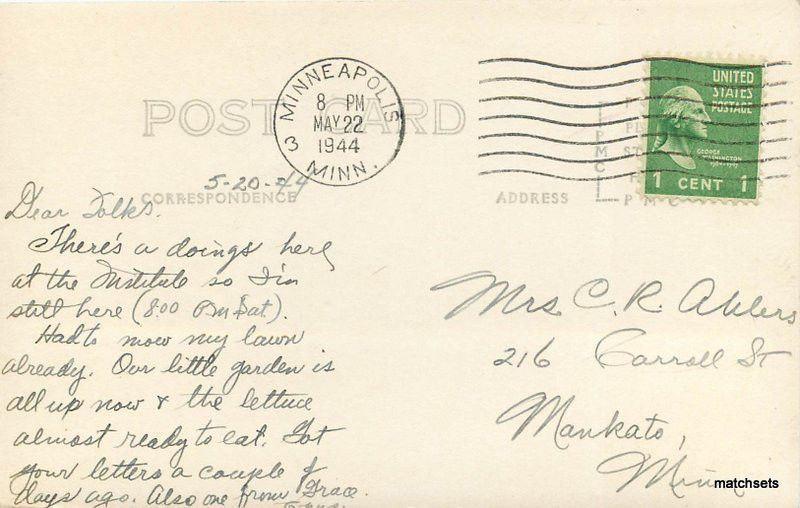 POST CARD
MINNEAPOLIS
8 PM
MAY 22
1944
3 MINN.
UNITED
STATES
POSTAGE
GEORGE
WASHINGTON
1 CENT 1
PMC
PMC
5-20-44
CORRESPONDENCE
ADDRESS
Dear Folks.
There's a doings here
at the Institute so I'm
still here (8:00 PM Sat).
Had to mow my lawn
already. Our little garden is
all up now & the lettuce
almost ready to eat. Got
your letters a couple of
days ago. Also one from Grace.
Mrs. C. R. Ahlers
216 Carroll St
Mankato,
Minn
matchsets